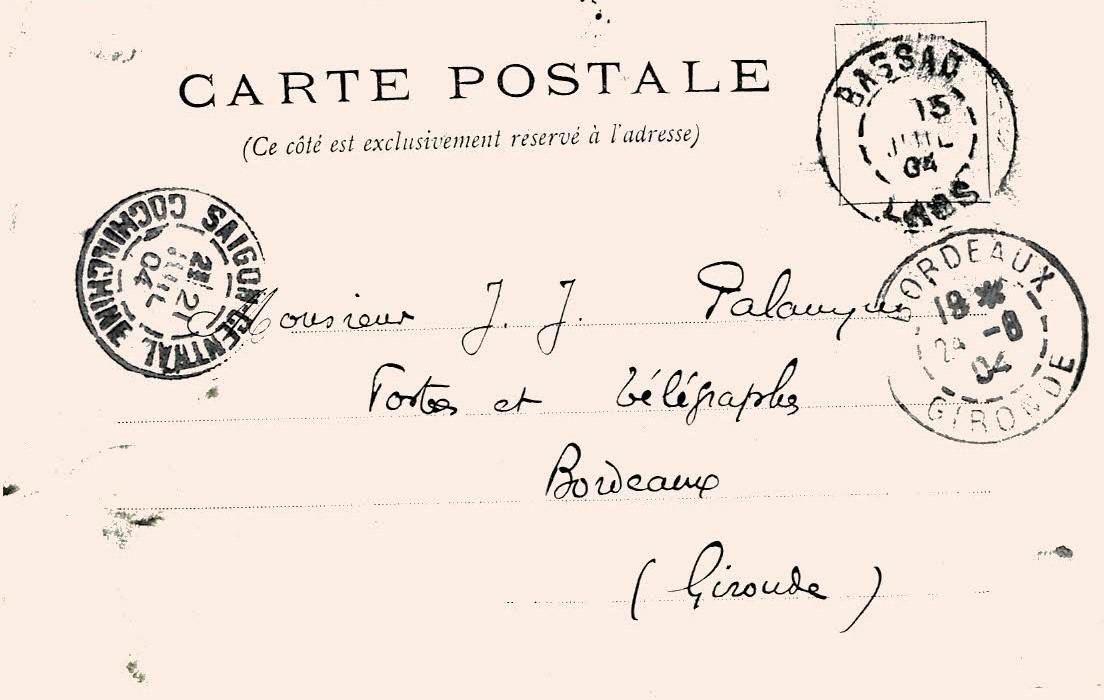 CARTE POSTALE
(Ce côté est exclusivement reservé à l'adresse)
BASSAC
15
JUIL
04
LAOS
SAIGON-CENTRAL
COCHINCHINE
21
JUIL
04
BORDEAUX
18 *
24 -8
04
GIRONDE
Monsieur J. J.
Postes et Télégraphes
Bordeaux
(Gironde)